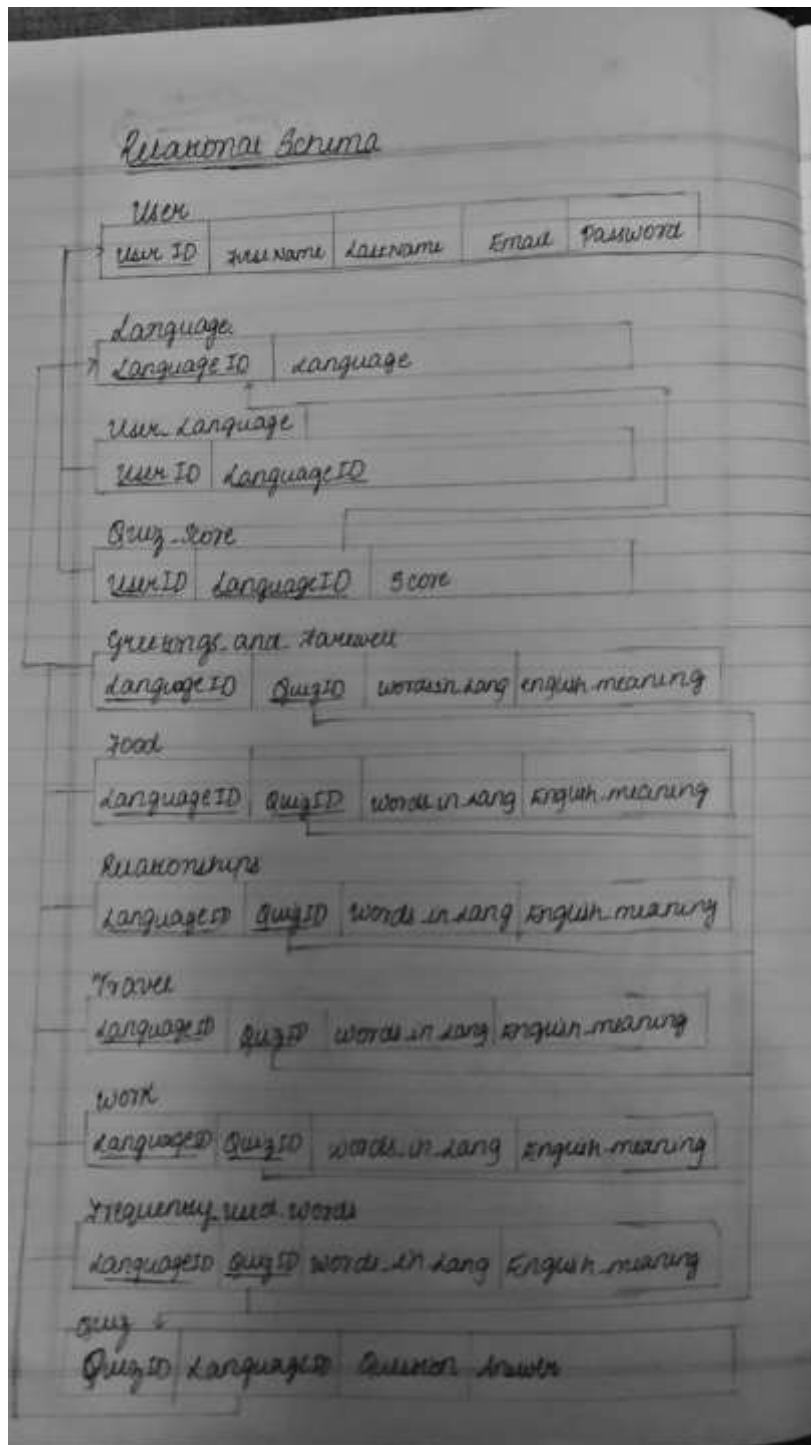 Relational Schema
User
User ID First Name Last Name Email Password
Language
Language ID Language
User_Language
User ID Language ID
Quiz_Score
User ID Language ID Score
Greetings_and_Farewell
Language ID Quiz ID words in Lang english_meaning
Food
Language ID Quiz ID Words_in_Lang English_meaning
Relationships
Language ID Quiz ID Words_in_Lang English_meaning
Travel
Language ID Quiz ID words_in_Lang English_meaning
Work
Language ID Quiz ID words_in_Lang English_meaning
Frequency_used_words
Language ID Quiz ID words_in_Lang English_meaning
Quiz
Quiz ID Language ID Question Answer